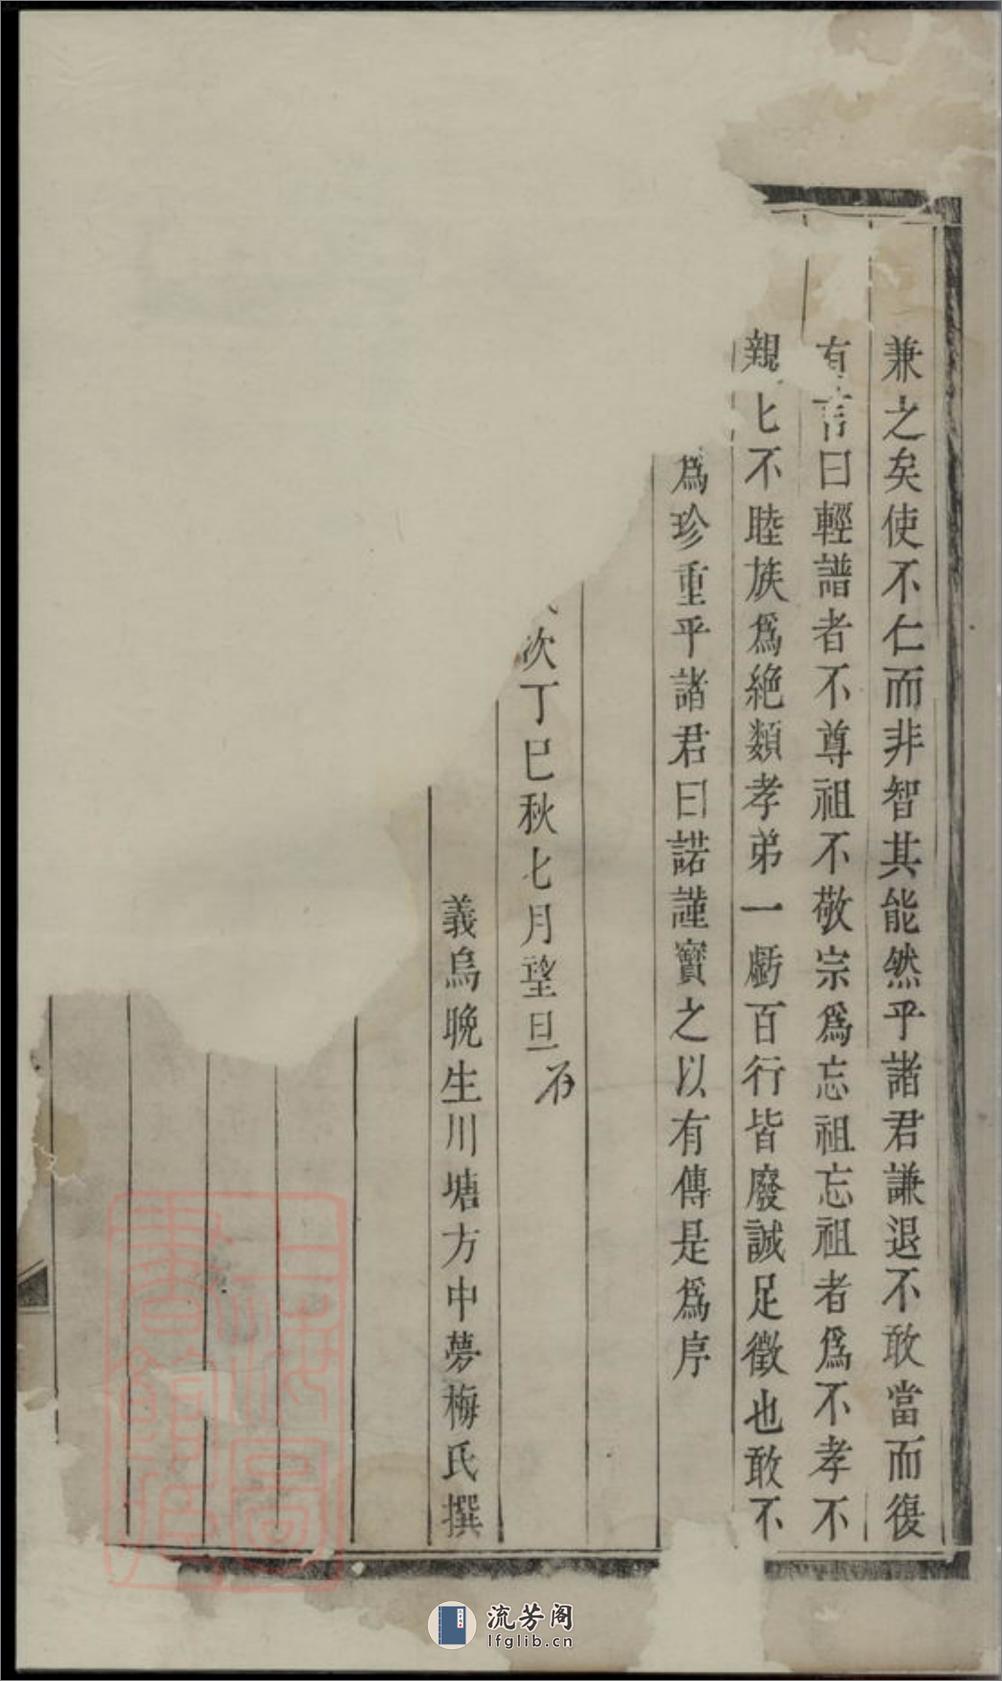 兼之矣使不仁而非智其能然乎諸君謙退不敢當而復
有言曰輕譜者不尊祖不敬宗爲忘祖忘祖者爲不孝不
親匕不睦族爲絶類孝弟一虧百行皆廢誠足徵也敢不
爲珍重乎諸君曰諾謹寳之以有傳是爲序
次丁巳秋七月望旦
義烏晚生川塘方中夢梅氏撰
上海圖書館藏
流芳阁
lfglib.cn